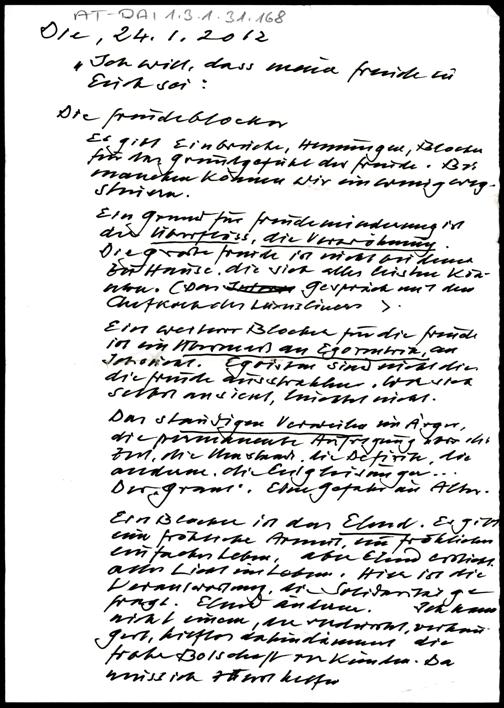 AT-DAI 1.3.1.31.168
Die, 24.1.2012
"Ich will, dass meine Freude in
Euch sei:
Die Freudeblocker
Es gibt Einbrüche, Hemmungen, Blocker
für das Grundgefühl der Freude. Bei
manchen können wir ein wenig weg-
steuern.
Ein Grund für Freudeminderung ist
der Überfluss, die Verwöhnung.
Die große Freude ist nicht bei denen
zu Hause, die sich alles leisten kön-
nen. (Das Gespräch mit dem
Chefkoch des Luxusliners).
Ein weiterer Blocker für die Freude
ist ein Übermaß an Egozentrik, an
Ichsucht. Egoisten sind nicht die
die Freude ausstrahlen. Wer sich
selbst ansieht, leuchtet nicht.
Das ständige Verweilen im Ärger,
die permanente Aufregung über die
Zeit, die Umstände, die Defizite, die
anderen, die Entgleisungen...
Der "Grant". Eine Gefahr im Alter.
Ein Blocker ist das Elend. Es gibt
eine fröhliche Armut, ein fröhliches
einfaches Leben, aber Elend erstickt
alles Licht im Leben. Hier ist die
Verantwortung, die Solidarität ge-
fragt. Elend ändern. Ich kann
nicht einem, der verhun-
gert, hilflos dahindämmert die
frohe Botschaft verkünden. Da
muss ich zuerst helfen